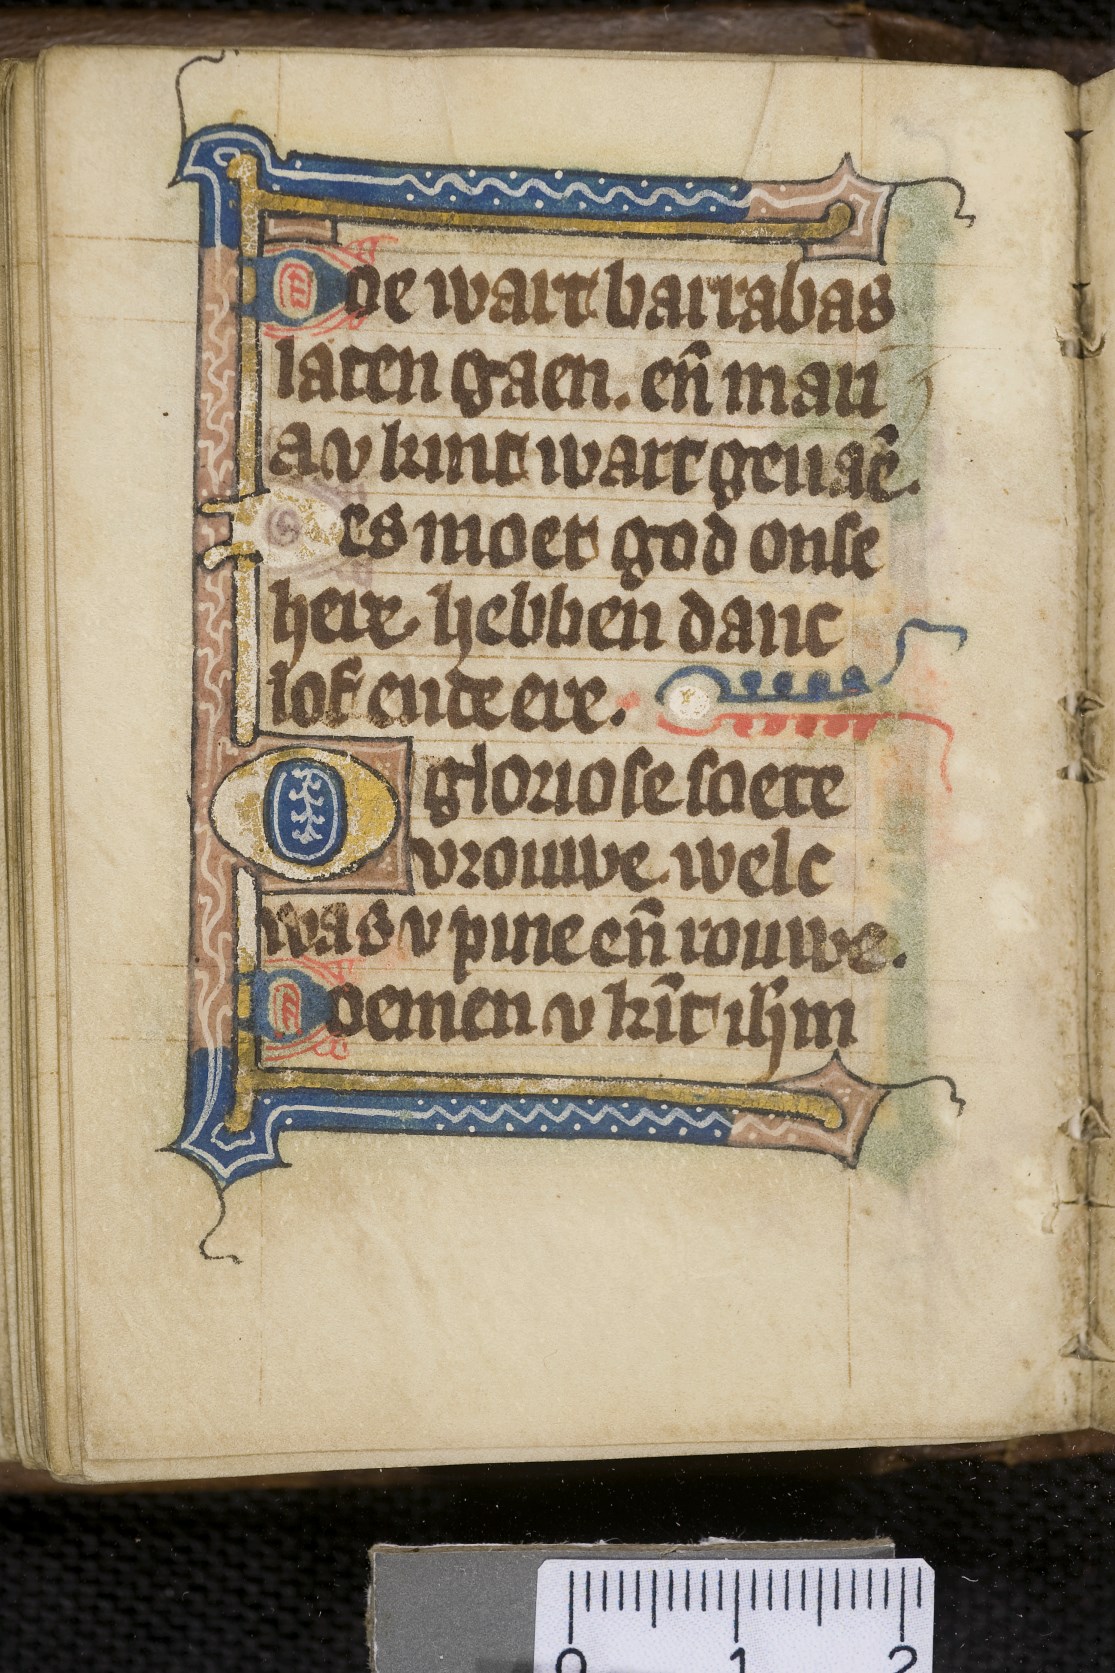 Doe wart barrabas
laten gaen. en̄ mari
a v kint wart geuaē.
Es moet god onse
here hebben danc
lof ende ere.
O gloriose soete
vrouwe welc
was v pine en̄ rouwe.
Doemen v kīt ihm
0 1 2